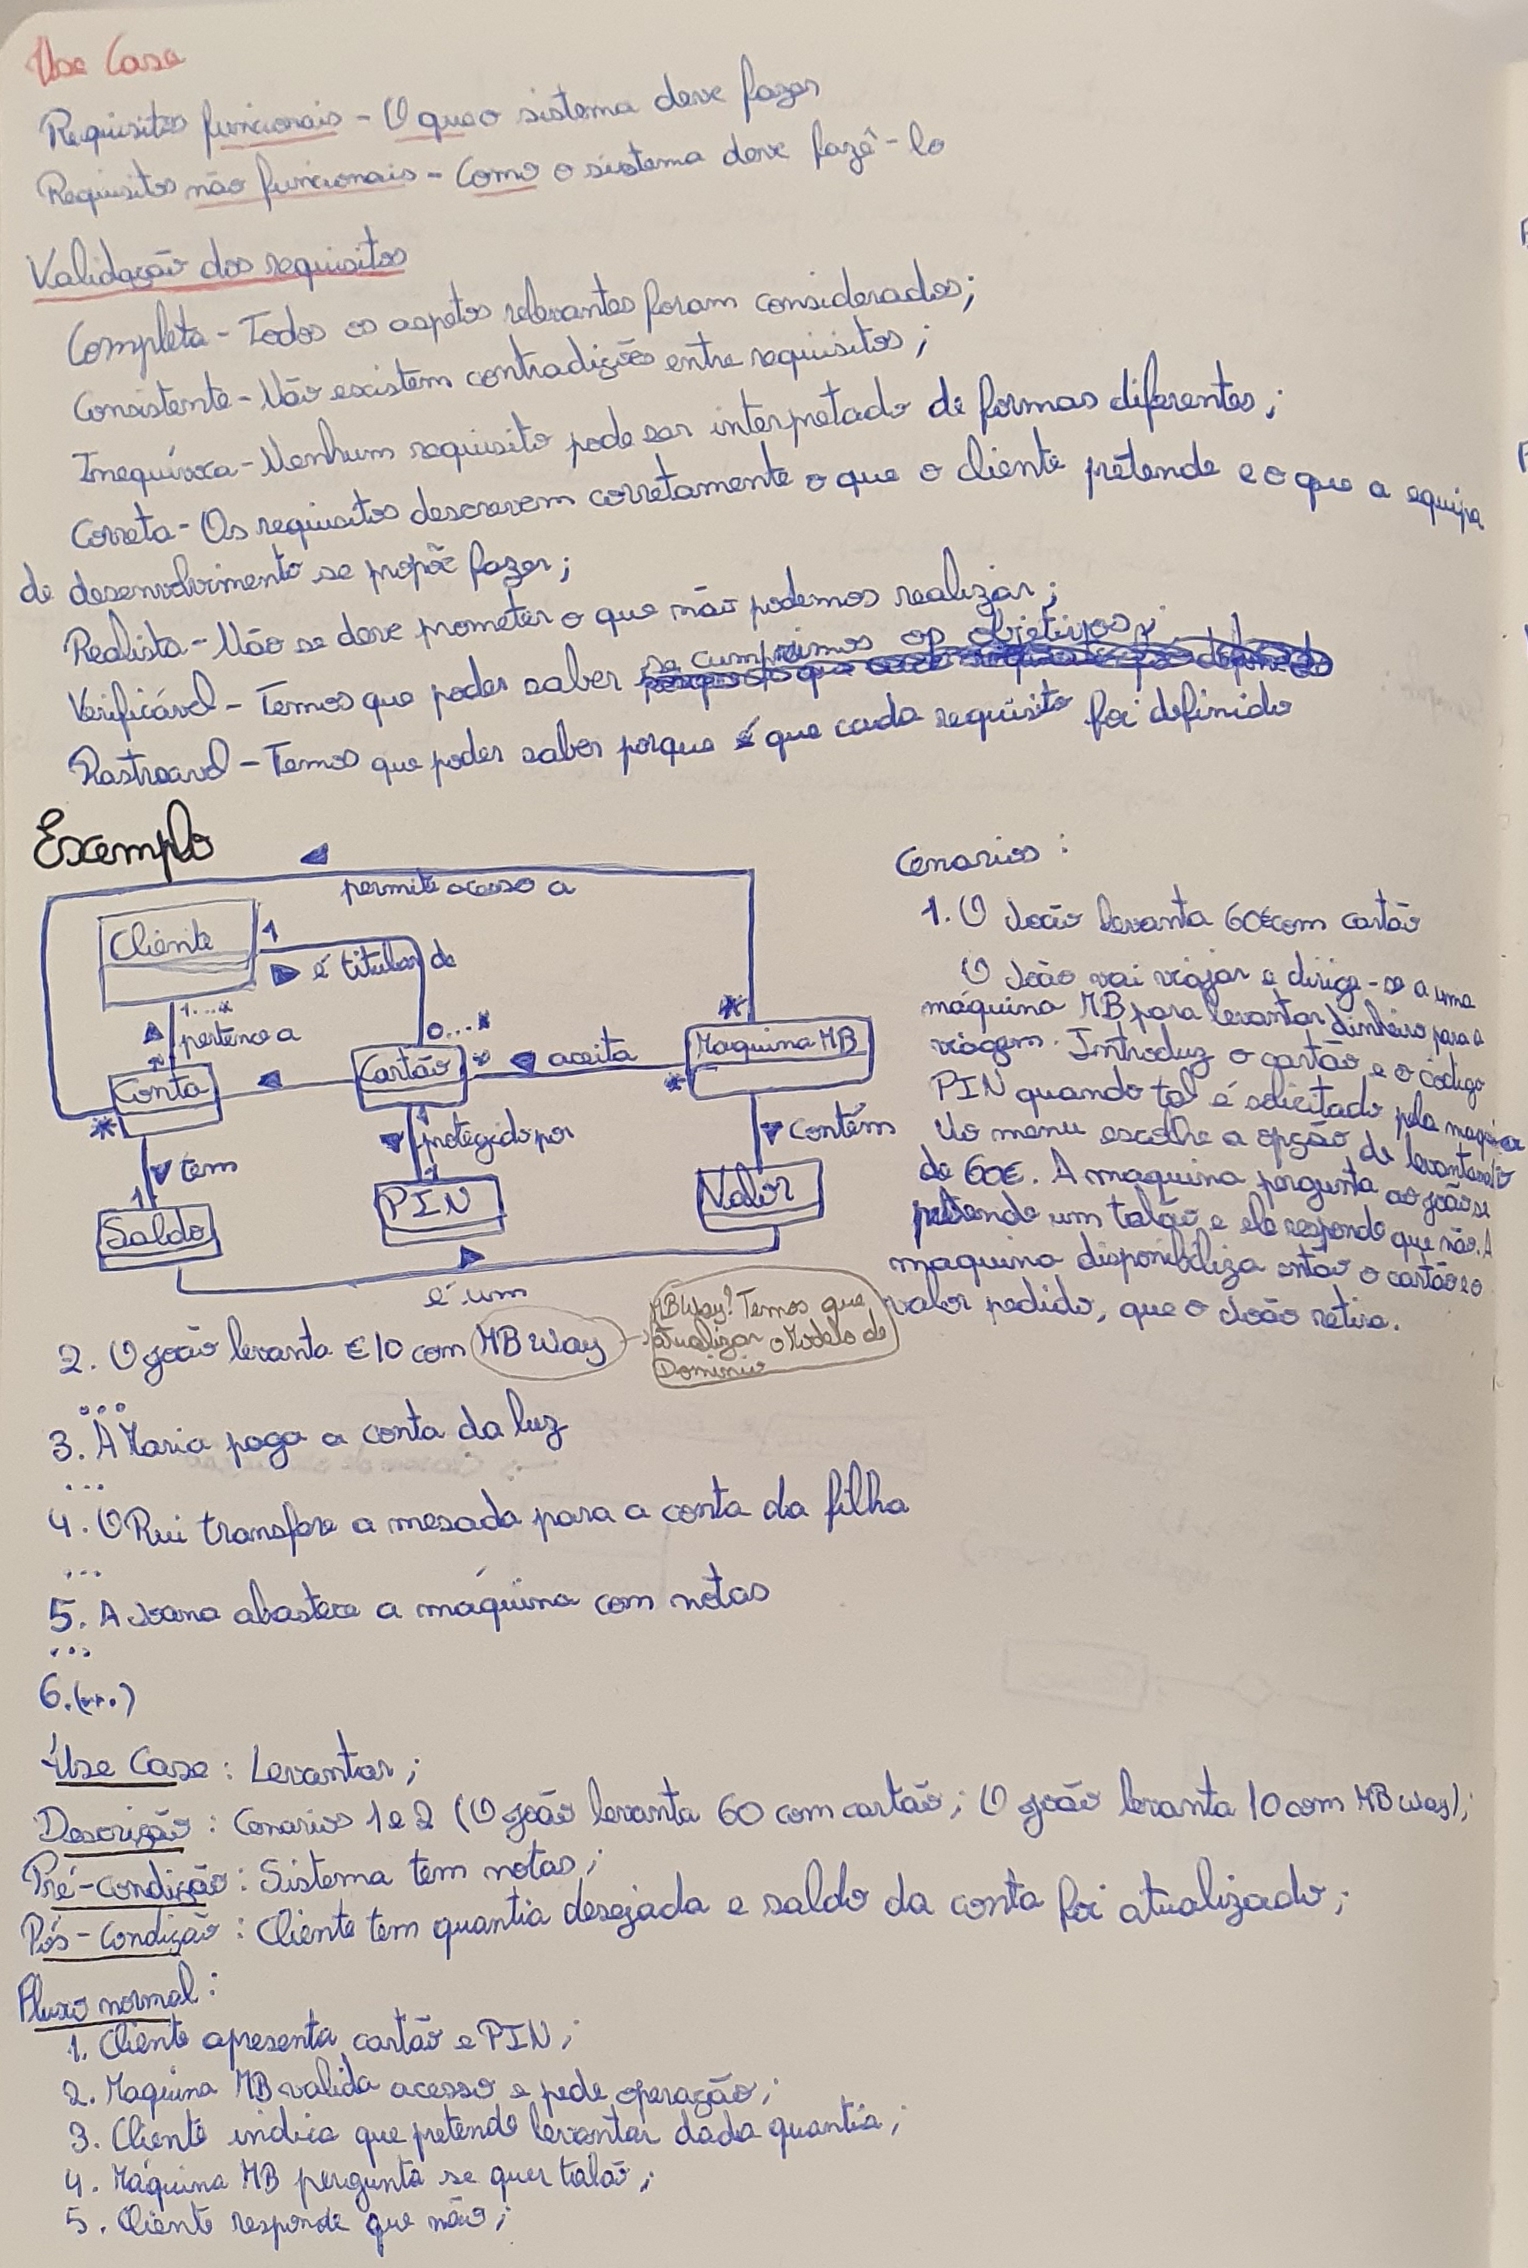 Use Case
Requisitos funcionais - O que o sistema deve fazer
Requisitos não funcionais - Como o sistema deve fazê-lo
Validação dos requisitos
Completa - Todos os aspetos relevantes foram considerados;
Consistente - Não existem contradições entre requisitos;
Inequívoca - Nenhum requisito pode ser interpretado de formas diferentes;
Correta - Os requisitos descrevem corretamente o que o cliente pretende e o que a equipa
de desenvolvimento se propõe fazer;
Realista - Não se deve prometer o que não podemos realizar;
Verificável - Temos que poder saber se cumprimos os objetivos;
Rastreavel - Temos que poder saber porque é que cada requisito foi definido
Exemplo
permite acesso a
Cliente
1
é titular de
1...*
pertence a
*
0...*
*
Conta
Cartão
*
aceita
*
Maquina MB
*
tem
1
protegido por
1
contém
1
Saldo
PIN
Valor
é um
Cenarios:
1. O João levanta 60€ com cartão
O João vai viajar e dirige-se a uma
máquina MB para levantar dinheiro para a
viagem. Introduz o cartão e o código
PIN quando tal é solicitado pela maquina
No menu escolhe a opção de levantamento
de 60€. A maquina pergunta ao joão se
pretende um talão e ele responde que não. A
maquina disponibiliza então o cartão e o
valor pedido, que o João retira.
2. O joão levanta €10 com MB Way
MBWay? Temos que
atualizar o Modelo de
Dominio
...
3. A Maria paga a conta da luz
...
4. O Rui transfere a mesada para a conta da filha
...
5. A Joana abastece a máquina com notas
...
6. (...)
Use Case: Levantar;
Descrição: Cenarios 1 e 2 (O joão levanta 60 com cartão; O joão levanta 10 com MB way);
Pré-condição: Sistema tem notas;
Pós-Condição: Cliente tem quantia desejada e saldo da conta foi atualizado;
Fluxo normal:
1. Cliente apresenta cartão e PIN;
2. Maquina MB valida acesso e pede operação;
3. Cliente indica que pretende levantar dada quantia;
4. Máquina MB pergunta se quer talão;
5. Cliente responde que não;